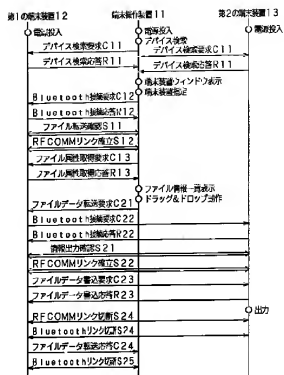 第1の端末装置12
端末操作装置11
第2の端末装置13
電源投入
電源投入
電源投入
デバイス検索
デバイス検索要求C11
デバイス検索要求C11
デバイス検索応答R11
デバイス検索応答R11
端末装置ウィンドウ表示
端末装置指定
Bluetooth接続要求C12
Bluetooth接続応答R12
ファイル転送確認S11
RFCOMMリンク確立S12
ファイル属性取得要求C13
ファイル属性取得応答R13
ファイル情報一覧表示
ドラッグ&ドロップ操作
ファイルデータ転送要求C21
Bluetooth接続要求C22
Bluetooth接続応答R22
情報出力確認S21
RFCOMMリンク確立S22
ファイルデータ書込要求C23
ファイルデータ書込応答R23
出力
RFCOMMリンク切断S24
Bluetoothリンク切断S24
ファイルデータ転送応答C24
Bluetoothリンク切断S25